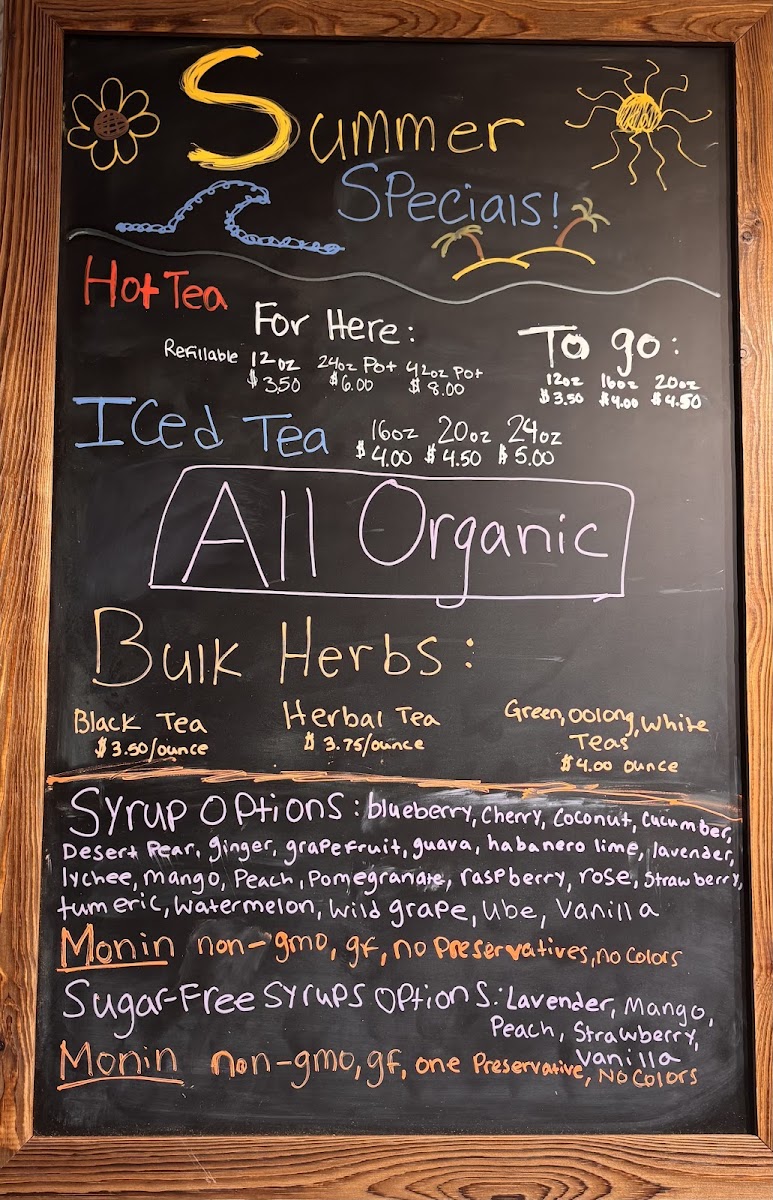 Summer
Specials!
Hot Tea
For Here:
Refillable 12oz 24oz Pot 42oz Pot
$3.50 $6.00 $8.00
To go:
12oz 16oz 20oz
$3.50 $4.00 $4.50
Iced Tea
16oz 20oz 24oz
$4.00 $4.50 $5.00
All Organic
Bulk Herbs:
Black Tea
$3.50/ounce
Herbal Tea
$3.75/ounce
Green, oolong, white
Teas
$4.00 ounce
Syrup options: blueberry, cherry, coconut, cucumber,
Desert Pear, ginger, grapefruit, guava, habanero lime, lavender,
lychee, mango, Peach, Pomegranate, raspberry, rose, strawberry,
tumeric, watermelon, wild grape, ube, vanilla
Monin non-gmo, gf, no Preservatives, no colors
Sugar-Free syrups options: Lavender, Mango,
Peach, Strawberry,
vanilla
Monin non-gmo, gf, one Preservative, no colors